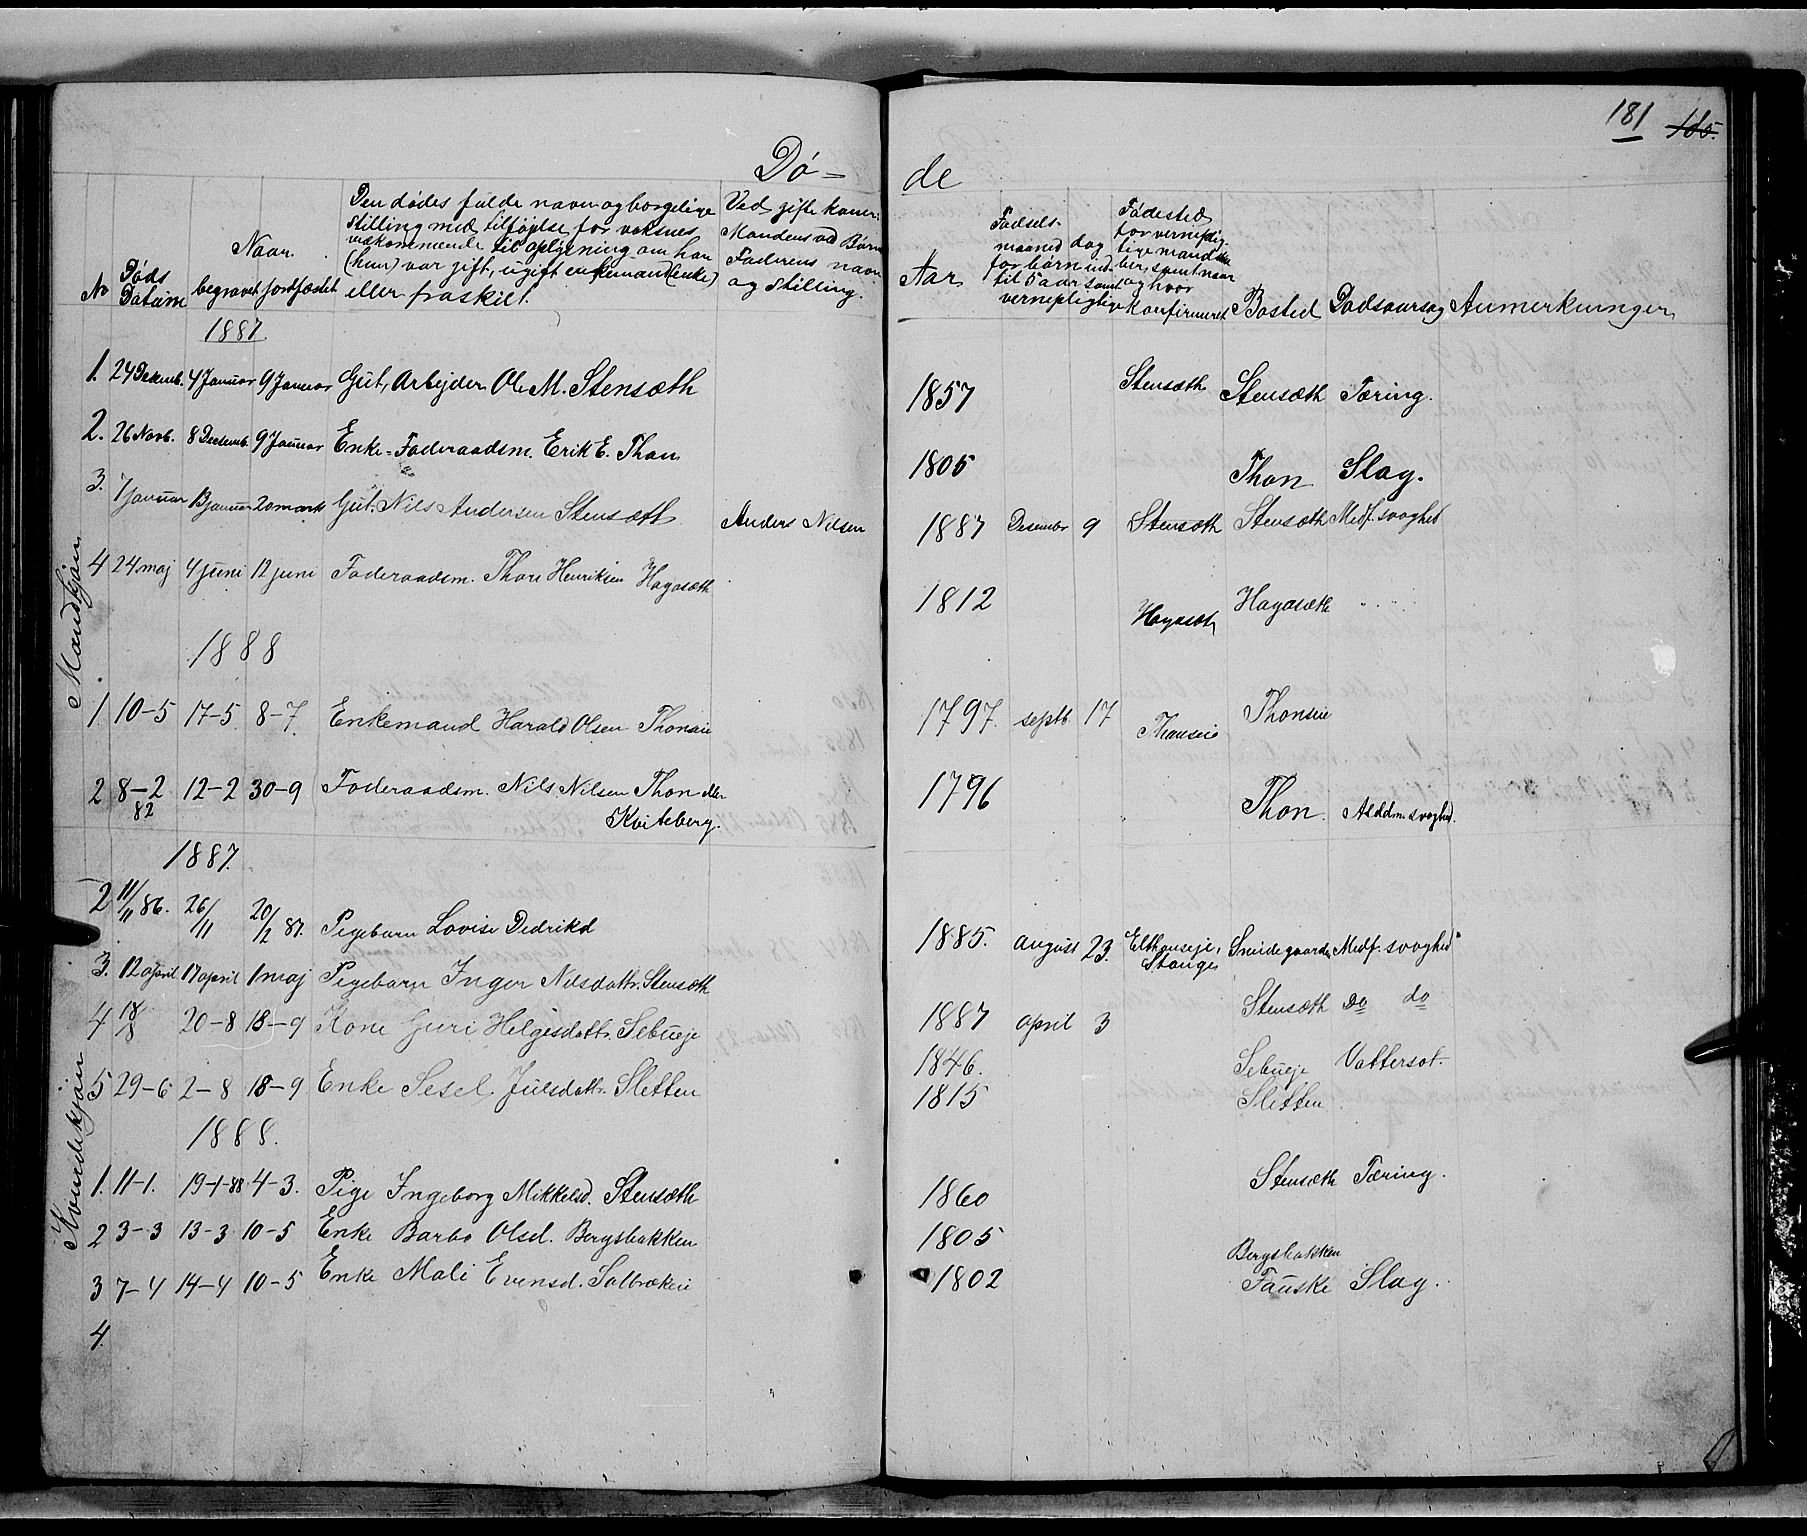 181 185.
Dø= de
No
Døds Datum
Naar begravet jordfæstet
Den dødes fulde navn og borgelige
stilling med tilføjelse for voksnes
vedkommende til oplysning om han
(hun) var gift, ugift enkemand (enke)
eller fraskilt.
Ved gifte koner
Mandens ved Børn
Faderens navn
og stilling.
Aar
Fødsels-
maaned dag
for børn ind-
til 5 aar samt
vernepligtige
Fødested
for verneplig-
tige mandska-
ber, samt naar
og hvor
Konfirmeret
Bosted Dødsaarsag Anmerkninger
Mandkjøn
1887.
1. 24 Decemb. 4 Januar 9 Januar Gut, Arbejder Ole M. Stensæth 1857 Stensæth Stensæth Tæring.
2. 26 Novb. 8 Decemb. 9 Januar Enke-Føderaadsm. Erik E. Thon 1805 Thon Slag.
3. 7 Januar 13 Januar 20 marts Gut. Nils Andersen Stensæth Anders Nilsen 1887 Desember 9 Stensæth Stensæth Medf. svaghed
4 24 maj 4 juni 12 juni Føderaadsm. Thore Henriksen Hagasæth 1812 Hagasæth Hagasæth " "
1888
1. 10-5 17-5 8-7 Enkemand Harald Olsen Thonseie 1797. septb 17 Thonseie Thonseie
2 8-2 82 12-2 30-9 Føderaadsm. Nils Nilsen Thon eller 1796 Thon. Alddm. svaghed.
Kviteberg.
Kvindekjøn
1887.
2 11/11 86. 26/11 20/2 87. Pigebarn Lovise Dedrikd 1885. august 23. Elthonseje, Stange Smidegaarden Medf. svaghed
3. 12 april 17 april 1 maj Pigebarn Inger Nilsdattr. Stensæth 1887 april 3 Stensæth Do do
4 18/8 20-8 18-9 Kone Guri Helgesdattr. Sebueje 1846. Sebueje Vattersot.
5 29-6 2-8 18-9 Enke Sesel Julsdattr. Sletten 1815 Sletten
1888.
1. 11-1. 19-1-88 4-3. Pige Ingeborg Mikkelsd. Stensæth 1860 Stensæth Tæring.
2 3-3 13-3 10-5 Enke Barbo Olsd. Bergsbakken 1805 Bergsbakken
3 7-4 14-4 10-5 Enke Mali Evensd. Solbrækeie 1802 Fauske Slag.
4.